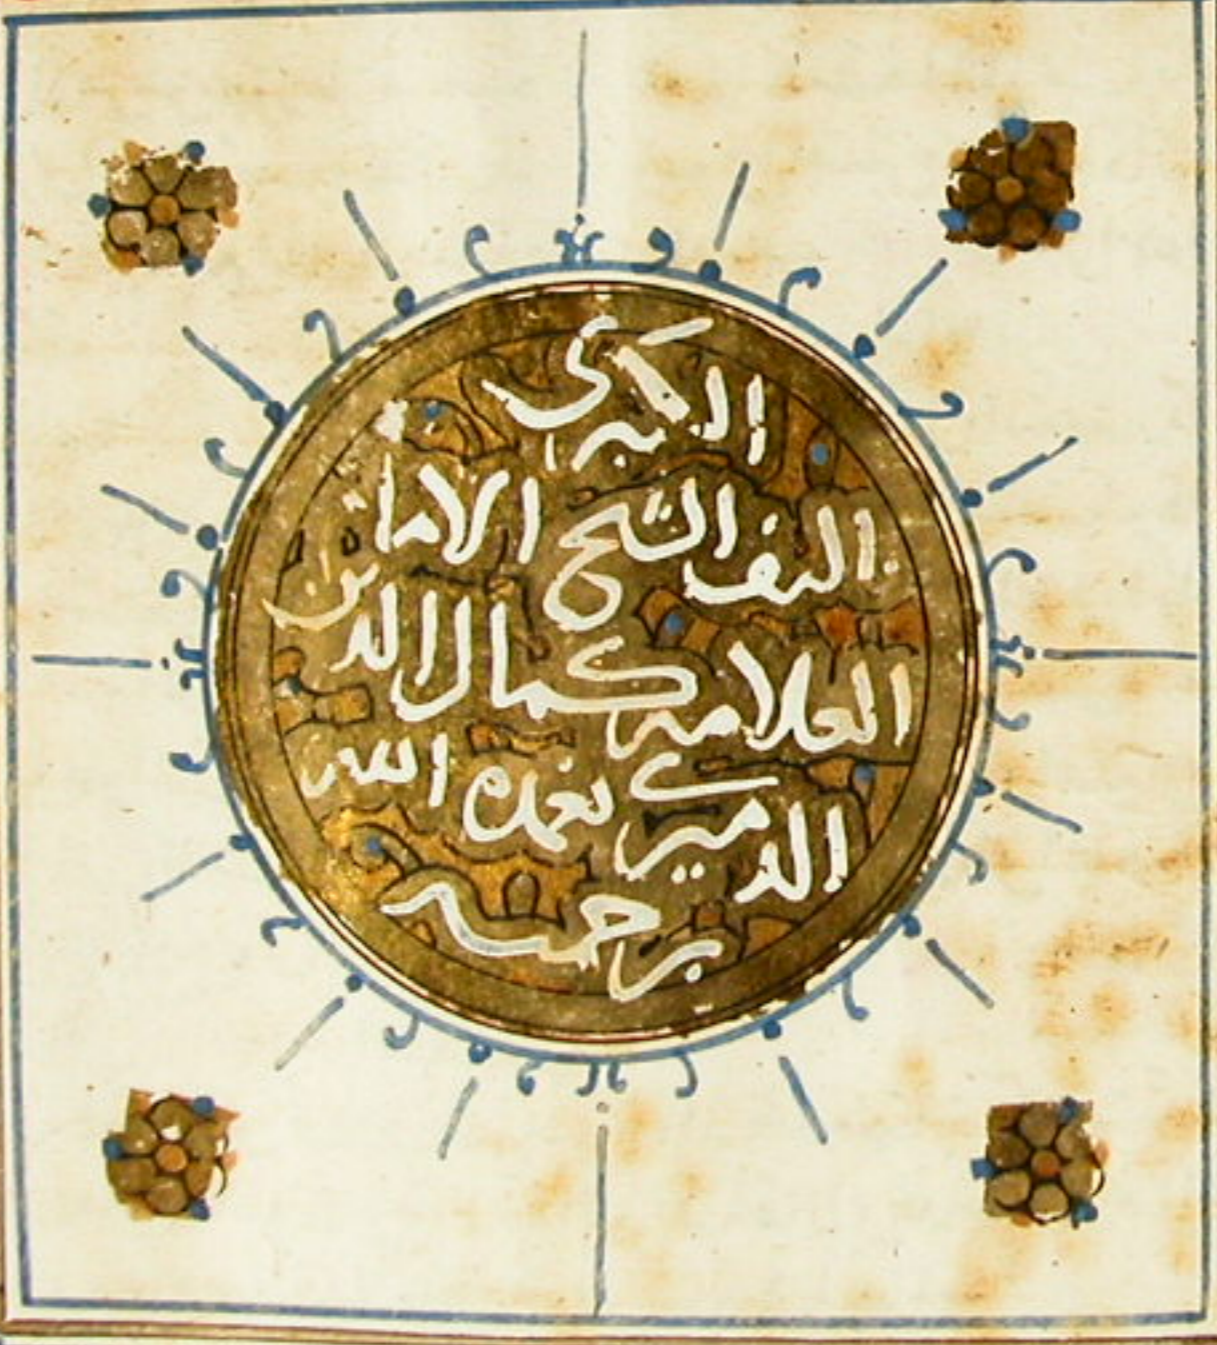 الكبرى
تاليف الشيخ الامام
العلامة كمال الدين
الدميرى تغمده الله
برحمته